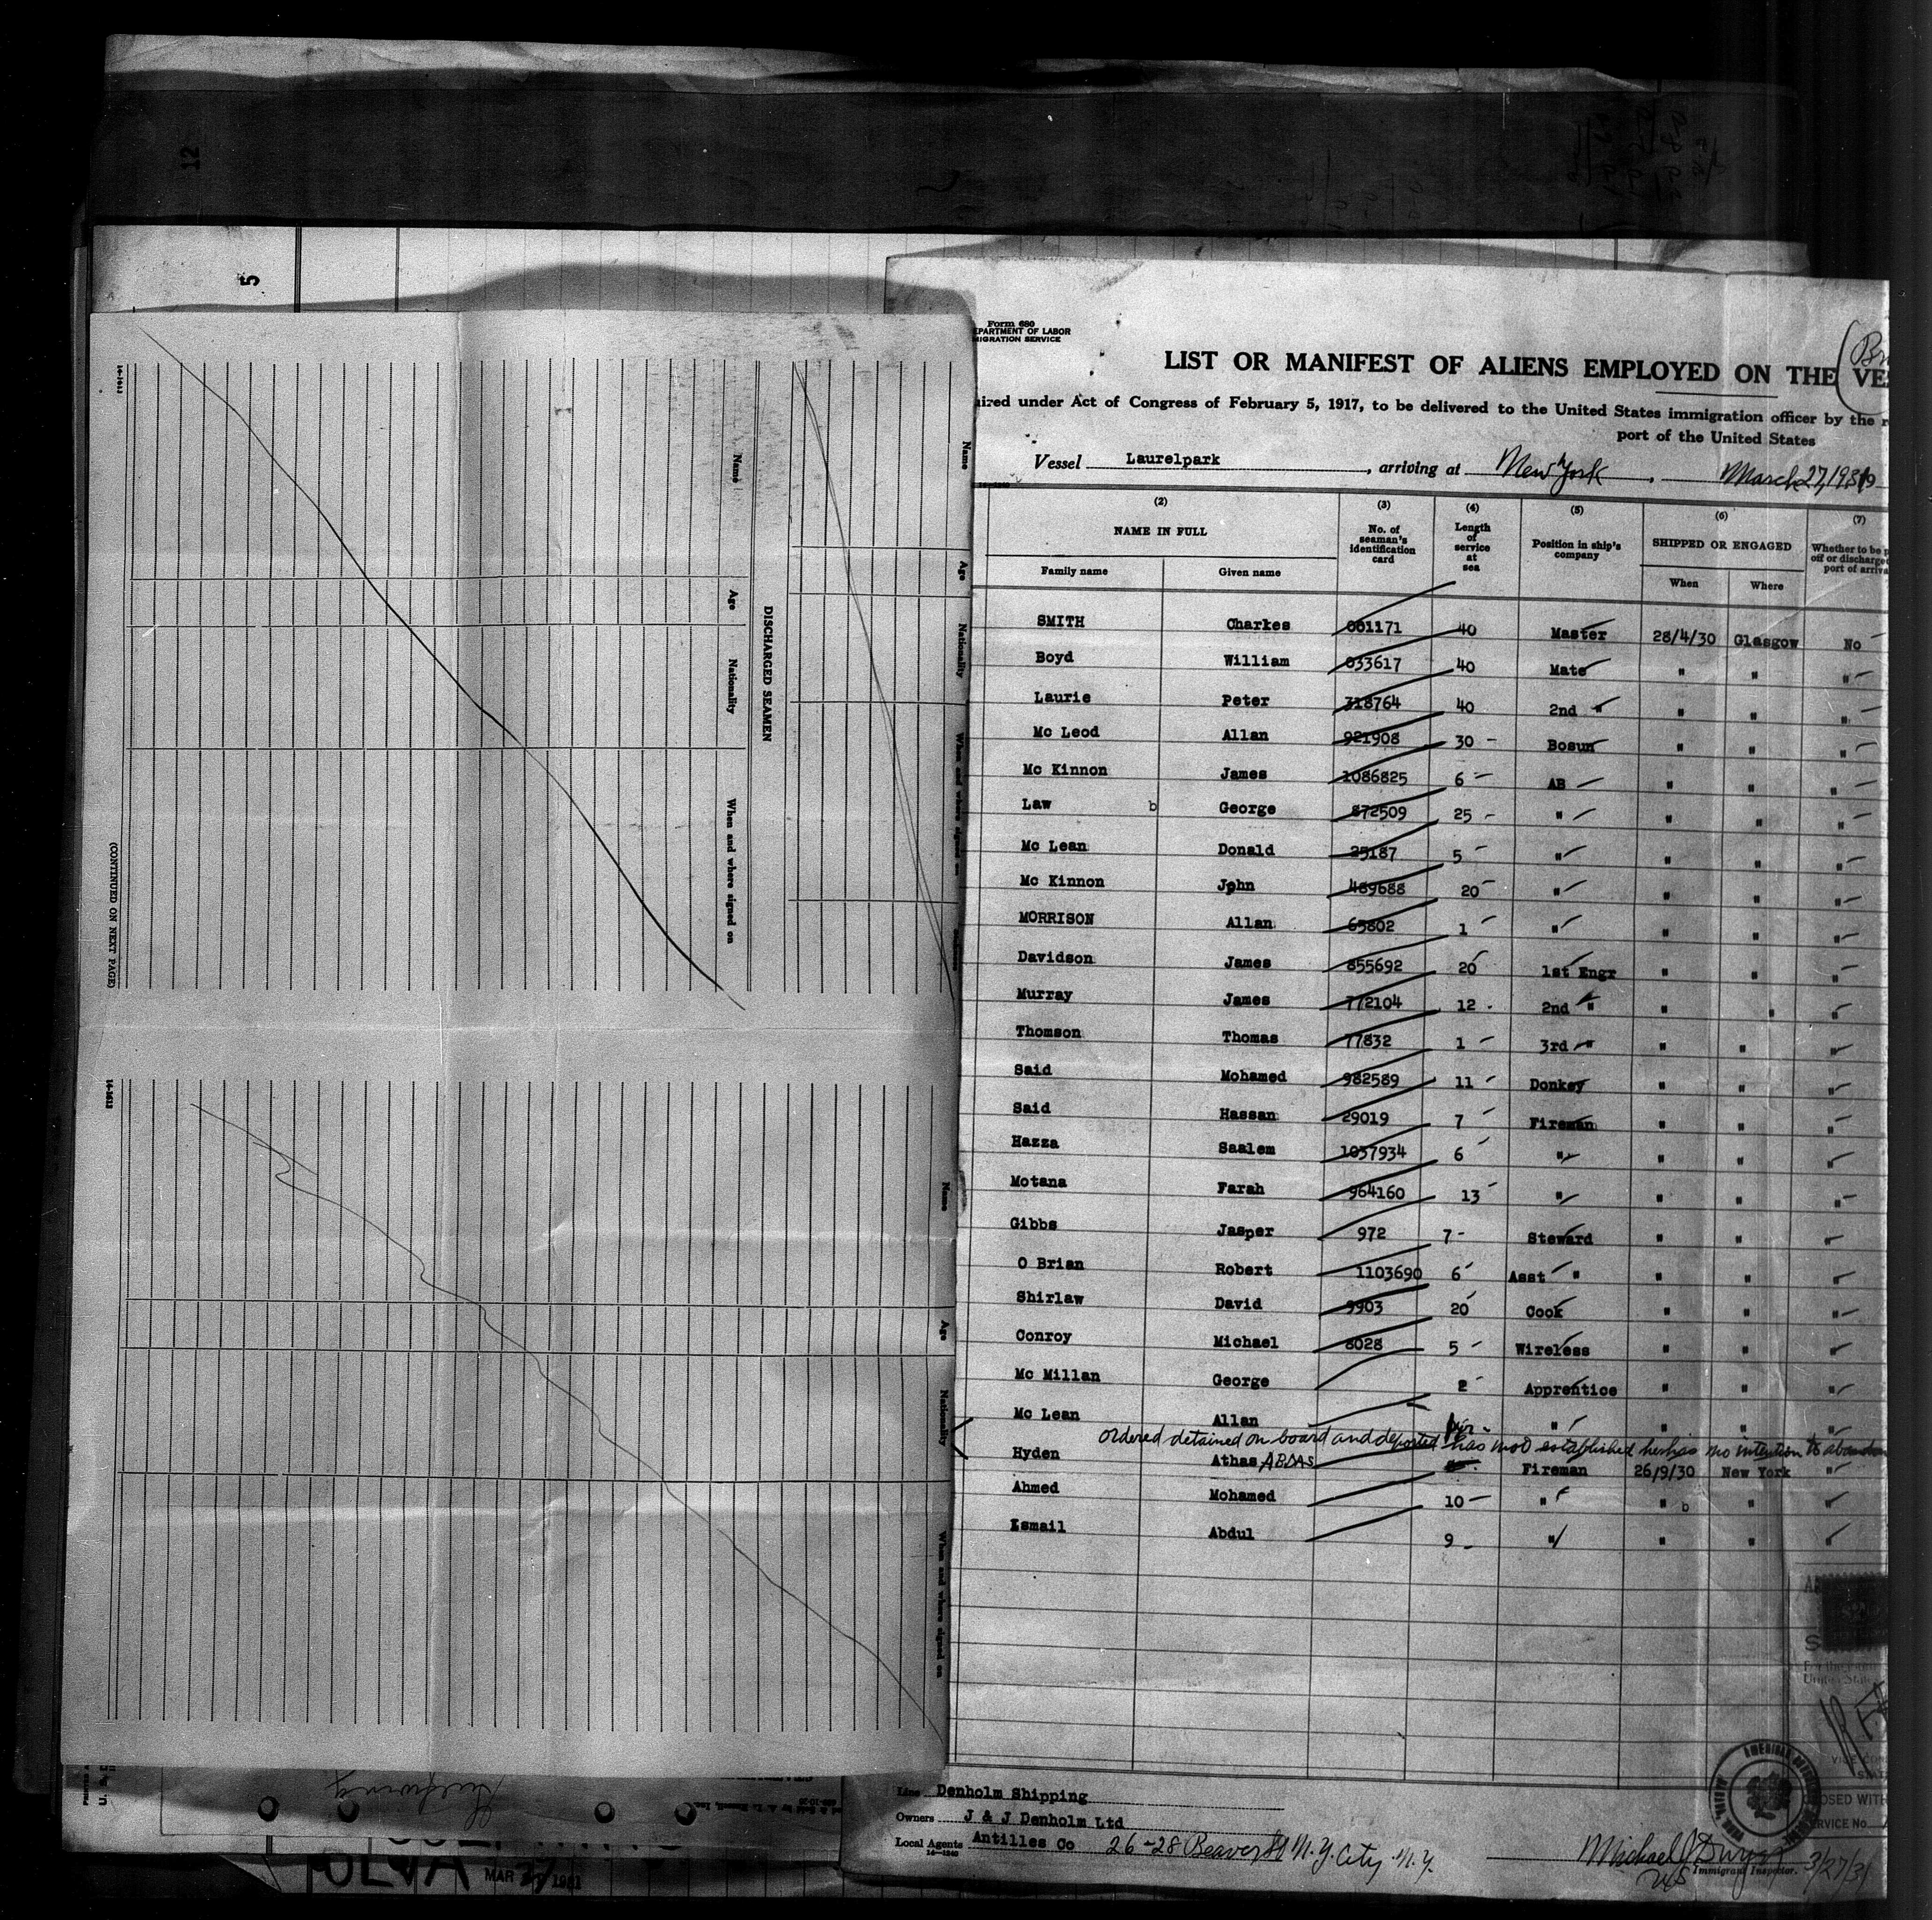 12
5
Name
Age
Nationality
When and where signed on
DISCHARGED SEAMEN
Name
Age
Nationality
When and where signed on
(CONTINUED ON NEXT PAGE)
Name
Age
Nationality
When and where signed on
MAR 27 1931
Form 680
EPARTMENT OF LABOR
MIGRATION SERVICE
LIST OR MANIFEST OF ALIENS EMPLOYED ON THE VES
uired under Act of Congress of February 5, 1917, to be delivered to the United States immigration officer by the r
port of the United States
Vessel Laurelpark, arriving at New York, March 27, 1931 19
(2) (3) (4) (5) (6) (7)
NAME IN FULL No. of seaman's identification card Length of service at sea Position in ship's company SHIPPED OR ENGAGED Whether to be p off or discharge port of arriva
Family name Given name When Where
SMITH Charkes 001171 40 Master 28/4/30 Glasgow No
Boyd William 033617 40 Mate " " "
Laurie Peter 318764 40 2nd " " " "
Mc Leod Allan 921908 30 Bosun " " "
Mc Kinnon James 1086825 6 AB " " "
Law b George 872509 25 " " " "
Mc Lean Donald 25187 5 " " " "
Mc Kinnon John 489688 20 " " " "
MORRISON Allan 65802 1 " " " "
Davidson James 855692 20 1st Engr " " "
Murray James 772104 12 2nd " " " "
Thomson Thomas 77832 1 3rd " " " "
Said Mohamed 982589 11 Donkey " " "
Said Hassan 29019 7 Fireman " " "
Hazza Saalem 1037934 6 " " " "
Motana Farah 964160 13 " " " "
Gibbs Jasper 972 7 Steward " " "
O Brian Robert 1103690 6 Asst " " " "
Shirlaw David 9903 20 Cook " " "
Conroy Michael 8028 5 Wireless " " "
Mc Millan George 2 Apprentice " " "
Mc Lean Allan " " " "
ordered detained on board and deported has not established he has no intention to abandon
Hyden Athas ABBAS Fireman 26/9/30 New York "
Ahmed Mohamed 10 " " b " "
Ismail Abdul 9 " " " "
Line Denholm Shipping
Owners J & J Denholm Ltd
Local Agents Antilles Co 26-28 Beaver St N.Y. City N.Y.
14-1240
Immigrant Inspector. 3/27/31